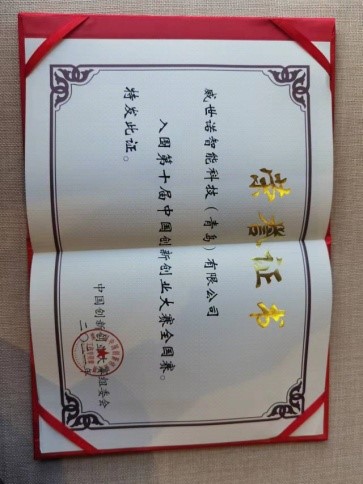 荣誉证书
威世诺智能科技（青岛）有限公司
入围第十届中国创新创业大赛全国赛。
特发此证。
中国创新创业大赛组委会